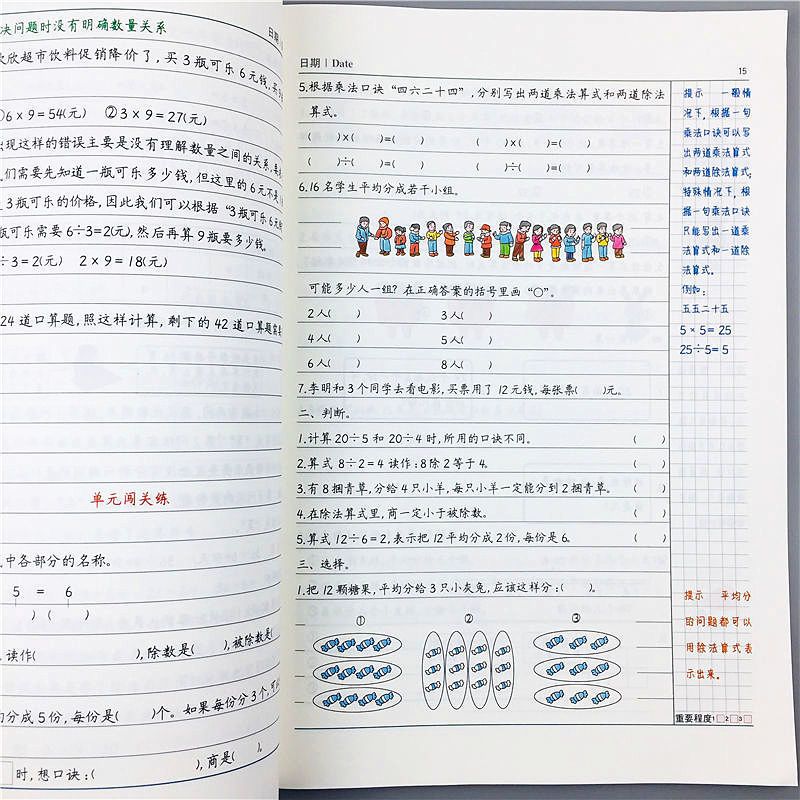 决问题时没有明确数量关系
欣超市饮料促销降价了，买3瓶可乐6元钱，买
①6×9=54(元)  ②3×9=27(元)
现这样的错误主要是没有理解数量之间的关系，
们需要先知道一瓶可乐多少钱，但这里的6元不是
3瓶可乐的价格，因此我们可以根据“3瓶可乐6元
瓶可乐需要6÷3=2(元)，然后再算9瓶要多少钱。
÷3=2(元)  2×9=18(元)
24道口算题，照这样计算，剩下的42道口算题
单元闯关练
中各部分的名称。
5 = 6
)(  )
读作(  )，除数是(  )，被除数是
分成5份，每份是(  )个。如果每份分3个，
时，想口诀：(  )，商是(  )。
日期 | Date
15
5.根据乘法口诀“四六二十四”，分别写出两道乘法算式和两道除法
算式。
(  )×(  )=(  )  (  )×(  )=(  )
(  )÷(  )=(  )  (  )÷(  )=(  )
6.16名学生平均分成若干小组。
可能多少人一组？在正确答案的括号里画“○”。
2人(  )  3人(  )
4人(  )  5人(  )
6人(  )  8人(  )
7.李明和3个同学去看电影，买票用了12元钱，每张票(  )元。
二、判断。
1.计算20÷5和20÷4时，所用的口诀不同。 (  )
2.算式8÷2=4读作：8除2等于4。 (  )
3.有8捆青草，分给4只小羊，每只小羊一定能分到2捆青草。 (  )
4.在除法算式里，商一定小于被除数。 (  )
5.算式12÷6=2，表示把12平均分成2份，每份是6. (  )
三、选择。
1.把12颗糖果，平均分给3只小灰兔，应该这样分：(  )。
① ② ③
提示 一般情
况下，根据一句
乘法口诀可以写
出两道乘法算式
和两道除法算式。
特殊情况下，根
据一句乘法口诀
只能写出一道乘
法算式和一道除
法算式。
例如：
五五二十五
5×5=25
25÷5=5
提示 平均分
的问题都可以
用除法算式表
示出来。
重要程度1□2□3□